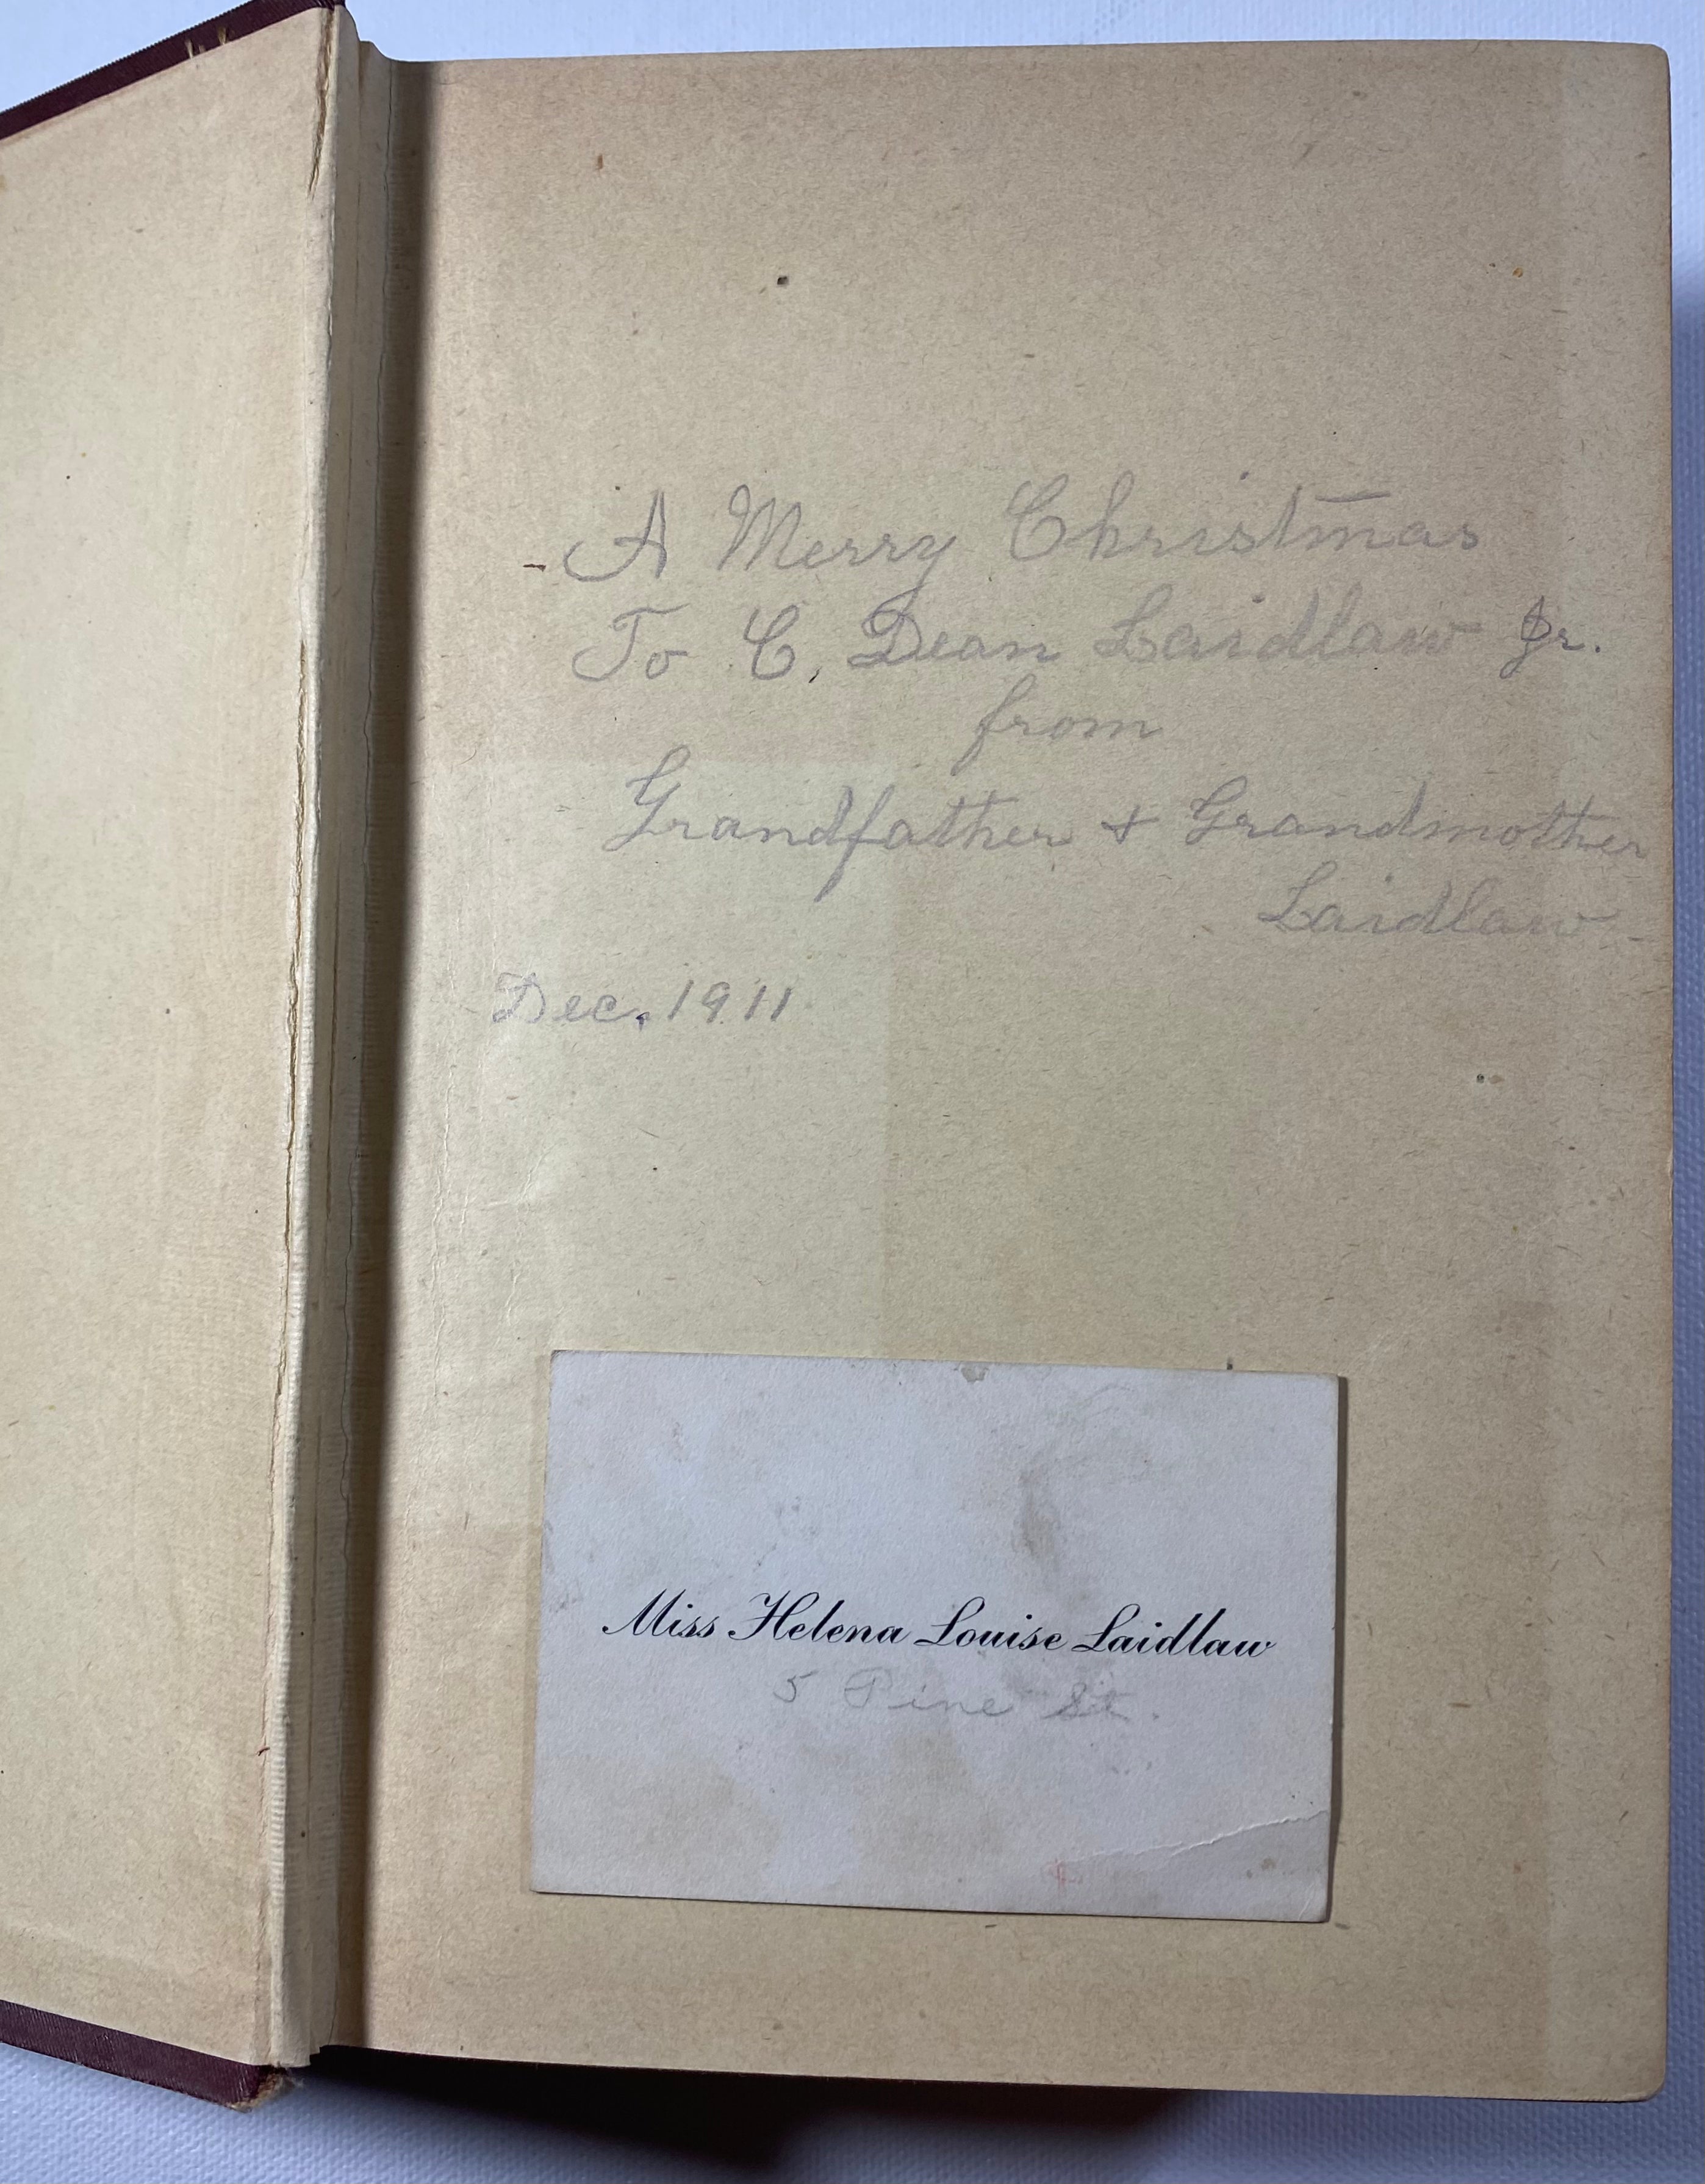 A Merry Christmas
To C. Dean Laidlaw Jr.
from
Grandfather + Grandmother
Laidlaw
Dec. 1911
Miss Helena Louise Laidlaw
5 Pine St.